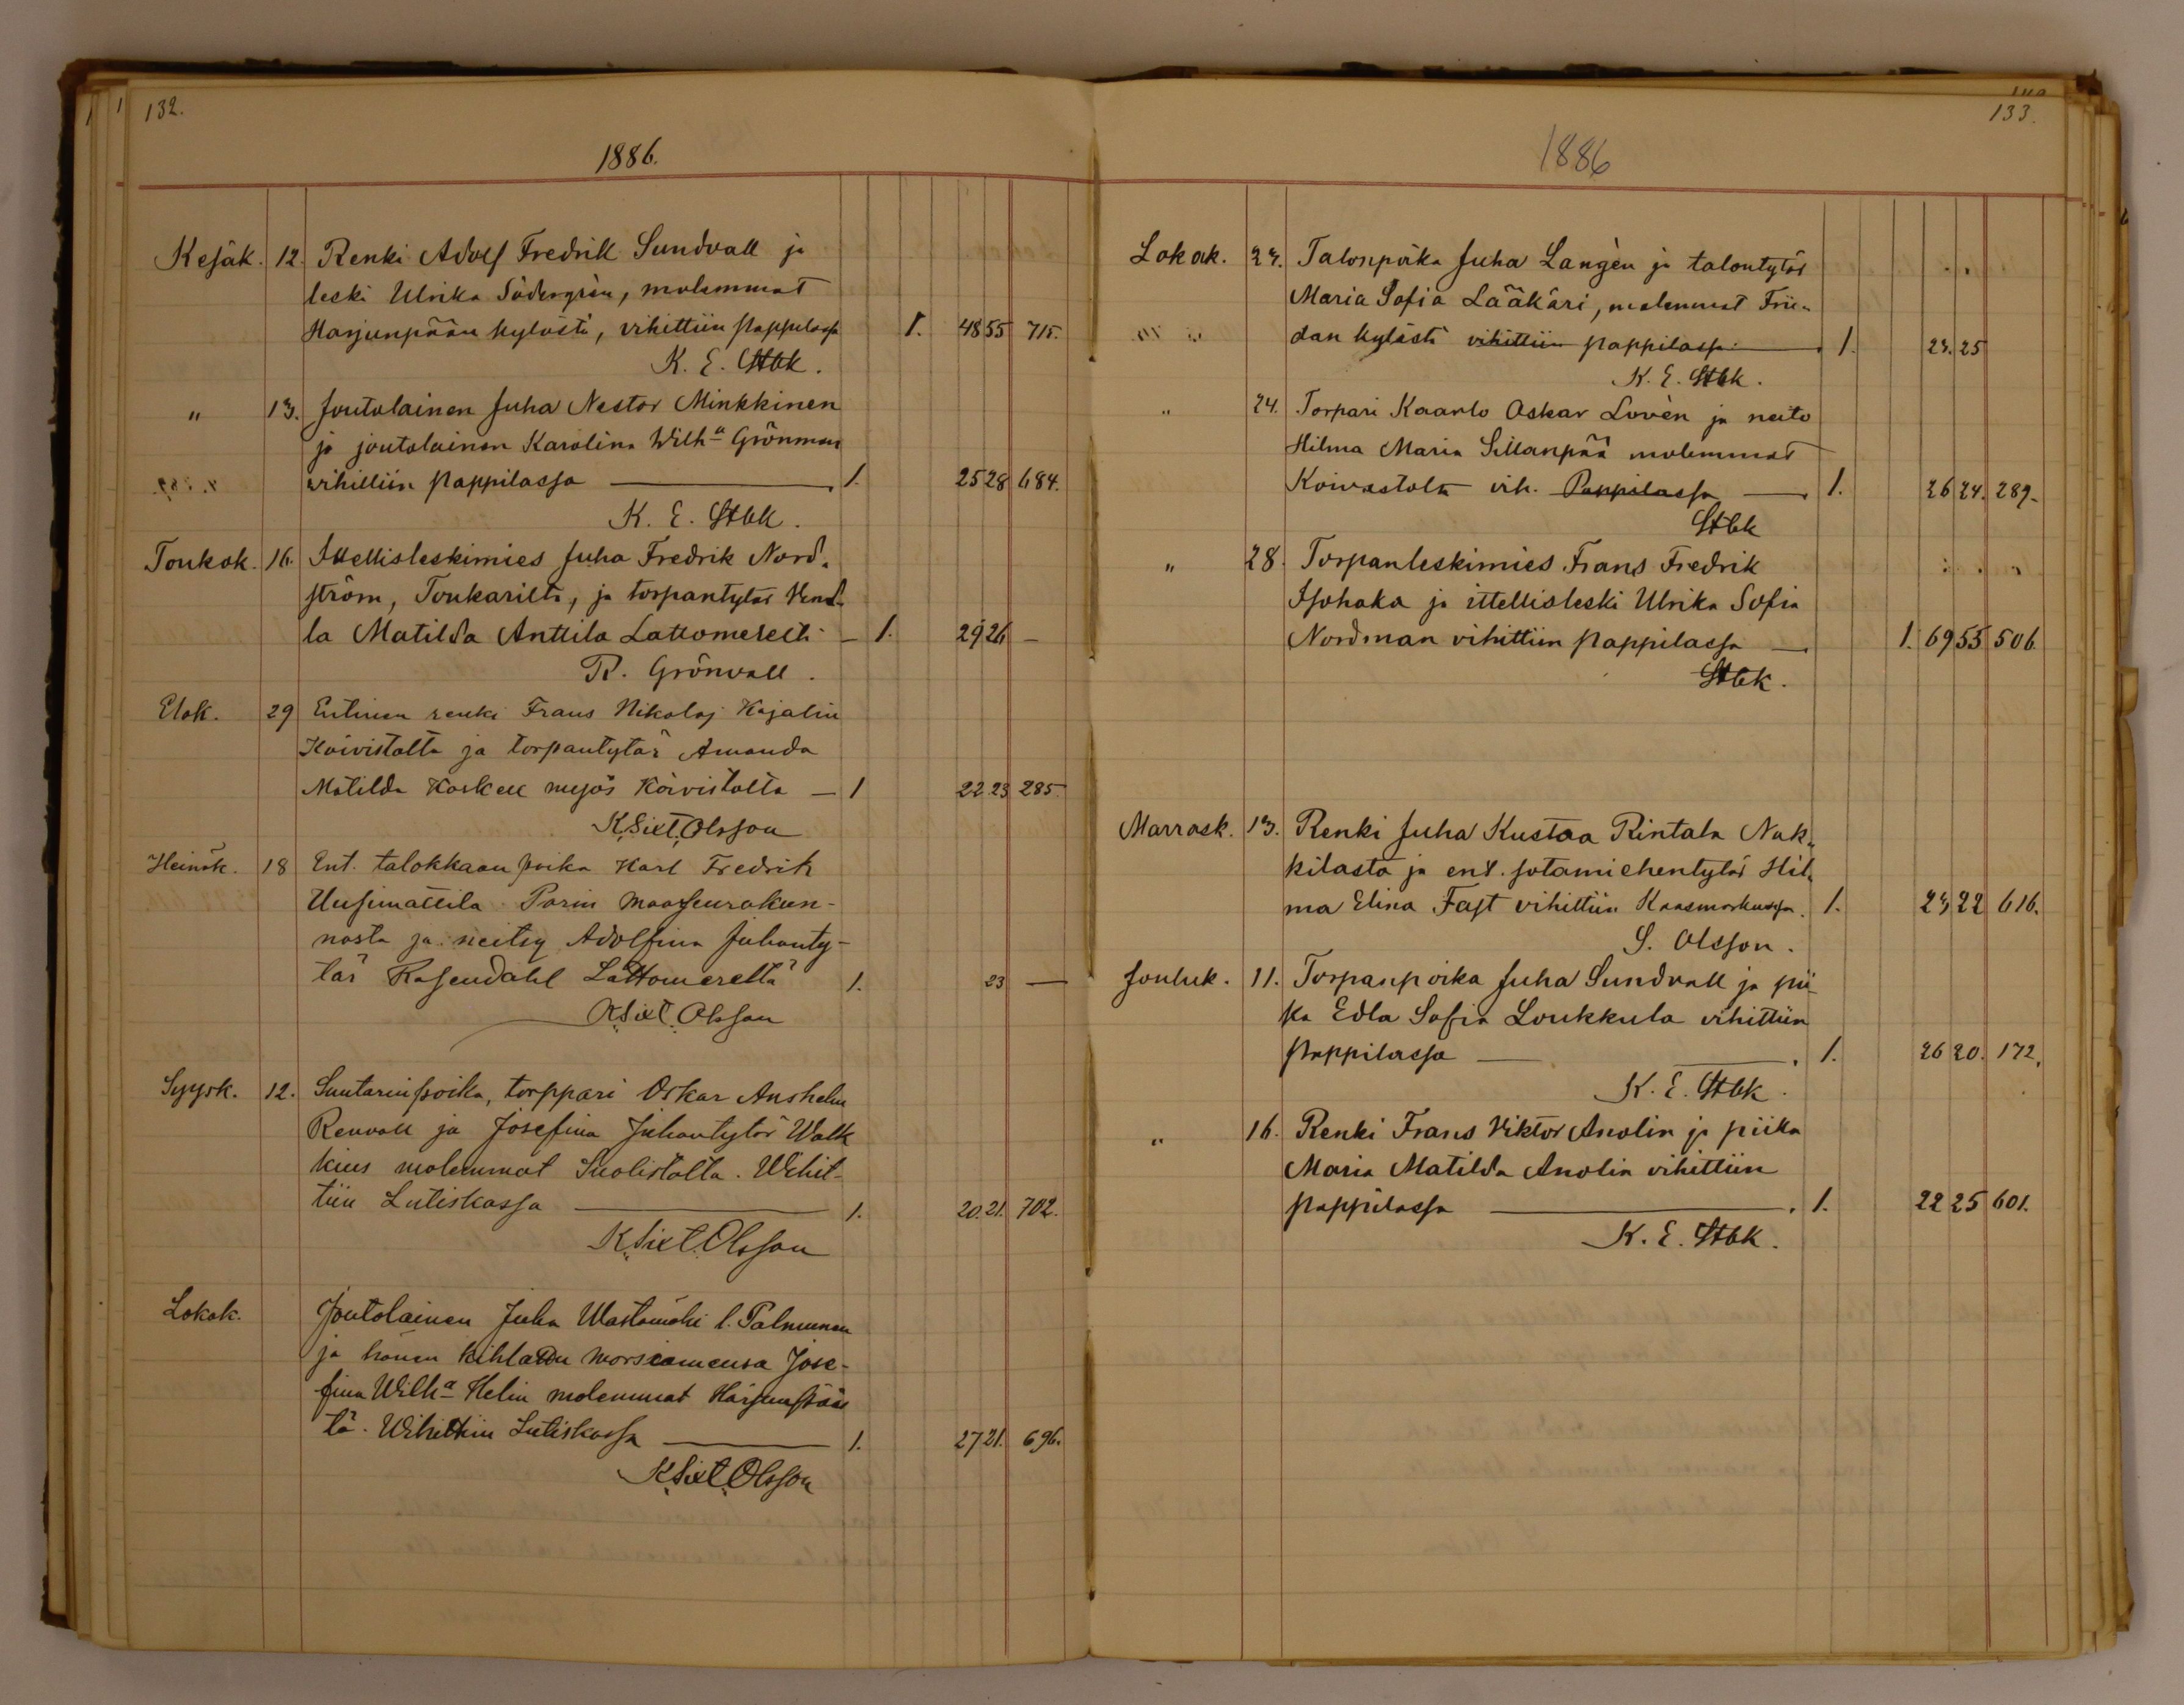 132.
1886.
Kesäk. 12. Renki Adolf Fredrik Sundvall ja
leski Ulrika Södergrèn, molemmat
Harjunpään kylästä, vihittiin pappilassa 1. 48 55 715.
K. E. Stbk.
" 13. Joutolainen Juha Nestor Minkkinen
ja joutolainen Karolina Wilh:a Grönman
vihittiin pappilassa — 1. 25 28 684.
K. E. Stbk.
Toukok. 16. Ittellisleskimies Juha Fredrik Nord-
ström, Toukarilta, ja torpantytär Vend-
la Matilda Anttila Lattomereltä — 1. 29 26 —
R. Grönvall.
Elok. 29 Entinen renki Frans Nikolaj Kajalin
Koivistolta ja torpantytär Amanda
Matilda Koskell myös Koivistolta — 1 22. 23 285.
K. Sixt. Olsson
Heinäk. 18 Ent. talokkaan poika Karl Fredrik
Uusimattila Porin maaseurakun-
nasta ja neitsy Adolfina Juhanty-
tär Rosendahl Lattomereltä 1. 23 —
K. Sixt. Olsson
Syysk. 12. Suutarinpoika, torppari Oskar Anshelm
Renvall ja Josefina Juhantytär Walk
kius molemmat Suolistolta. Wihit-
tiin Lutiskassa — 1. 20. 21. 702.
K. Sixt. Olsson
Lokak. Joutolainen Juha Wastamäki l. Palmunen
ja hänen kihlattu morsiamensa Jose-
fina Wilh:a Helin molemmat Harjunpääs
tä. Wihittiin Lutiskassa — 1. 27 21. 696.
K. Sixt. Olsson
133.
1886
Lokak. 23. Talonpoika Juha Langèn ja talontytär
Maria Sofia Lääkäri, molemmat Frii-
dan kylästä vihittiin pappilassa — 1. 23. 25
K. E. Stbk.
" 24. Torpari Kaarlo Oskar Lovèn ja neito
Hilma Maria Sillanpää molemmat
Koivistolta vih. Pappilassa — 1. 26 24. 289.
Stbk
" 28. Torpanleskimies Frans Fredrik
Isohaka ja ittellisleski Ulrika Sofia
Nordman vihittiin pappilassa — 1. 69 55 506.
Stbk.
Marrask. 13. Renki Juha Kustaa Rintala Nak-
kilasta ja ent. sotamiehentytär Hil-
ma Elina Fast vihittiin Kaasmarkussa. 1. 23 22 616.
S. Olsson.
Jouluk. 11. Torpanpoika Juha Sundvall ja pii-
ka Edla Sofia Loukkula vihittiin
pappilassa — 1. 26 20. 172.
K. E. Stbk.
" 16. Renki Frans Viktor Anolin ja piika
Maria Matilda Anolin vihittiin
pappilassa — 1. 22 25 601.
K. E. Stbk.